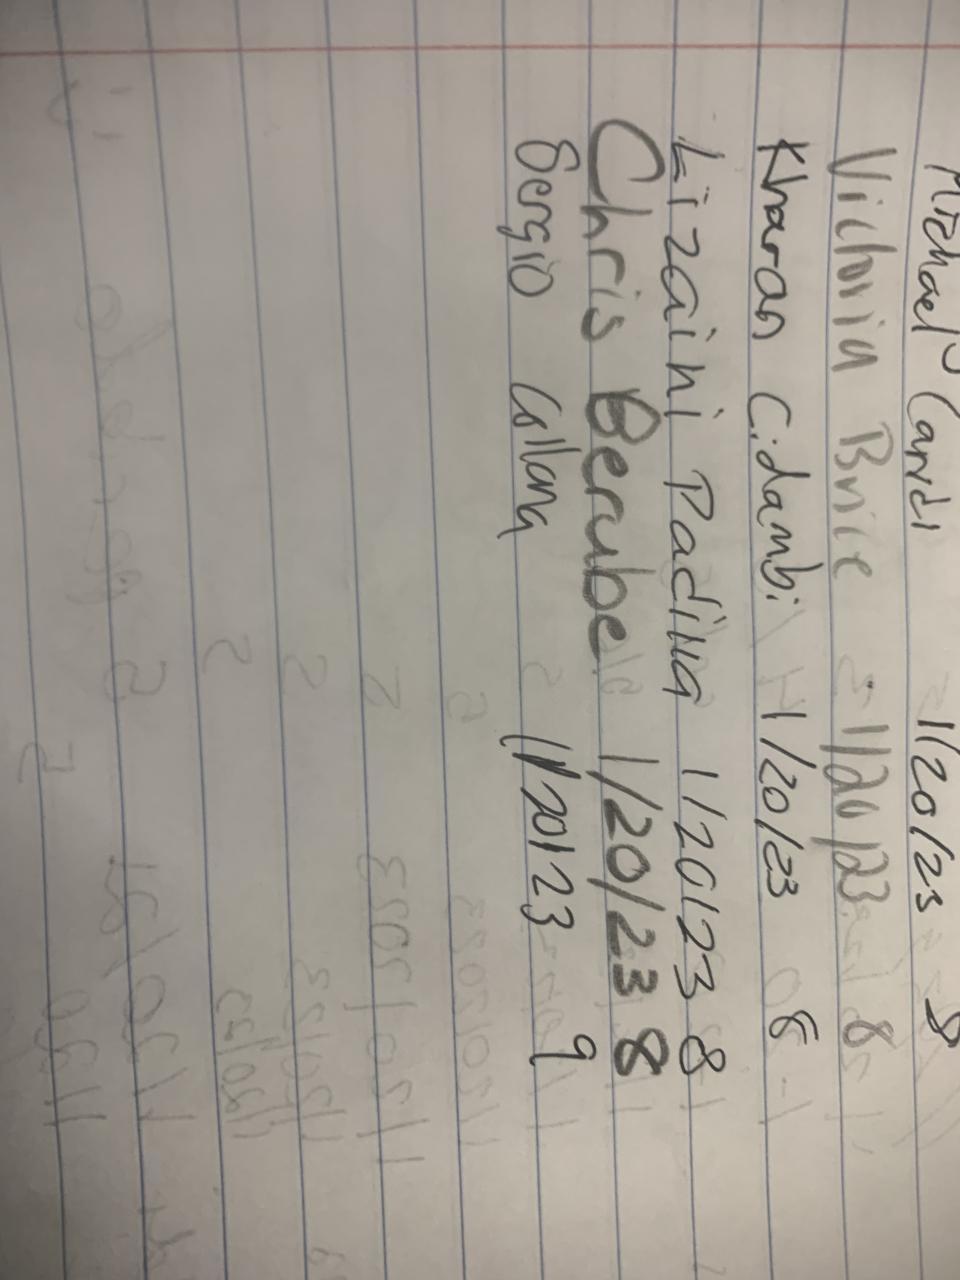 Michael Caridi 1/20/23 8
Victoria Brice 1/20/23 8
Kharan Cidambi 1/20/23 8
Lizaini Padilla 1/20/23 8
Chris Berube 1/20/23 8
Sergio Collana 1/20/23 9